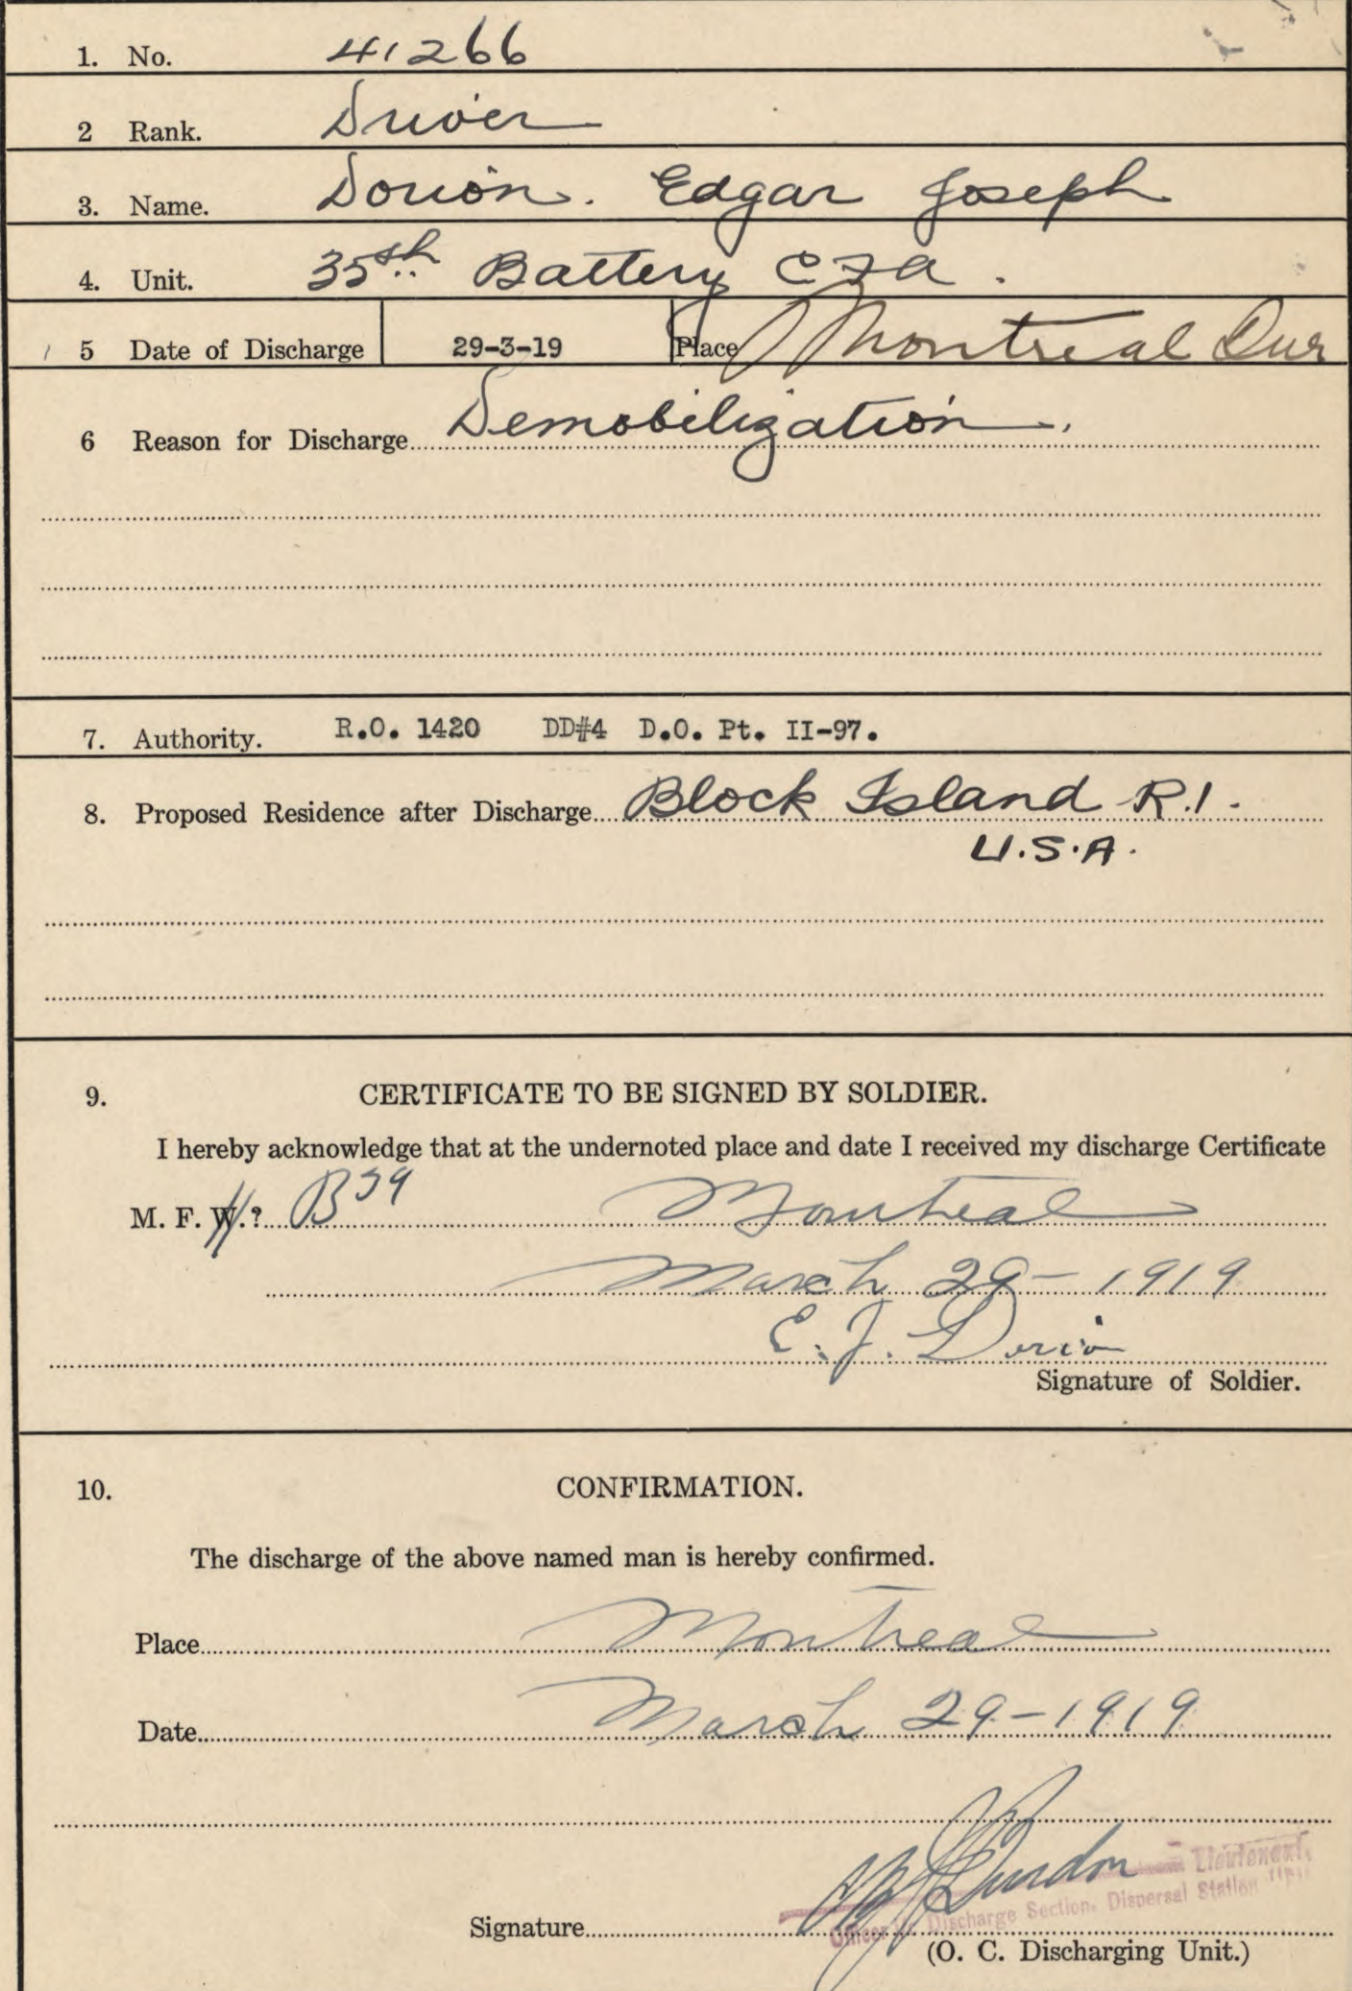 1. No. 41266
2 Rank. Driver
3. Name. Dorion. Edgar Joseph
4. Unit. 35th Battery CFA.
5 Date of Discharge 29-3-19 Place Montreal Que
6 Reason for Discharge Demobilization.
7. Authority. R.O. 1420 DD#4 D.O. Pt. II-97.
8. Proposed Residence after Discharge Block Island R.I.
U.S.A.
9. CERTIFICATE TO BE SIGNED BY SOLDIER.
I hereby acknowledge that at the undernoted place and date I received my discharge Certificate
M. F. W.? B39 Montreal
March 29-1919
E. J. Dorion
Signature of Soldier.
10. CONFIRMATION.
The discharge of the above named man is hereby confirmed.
Place Montreal
Date March 29-1919
Lieutenant,
Officer i/c Discharge Section, Dispersal Station
Signature
(O. C. Discharging Unit.)